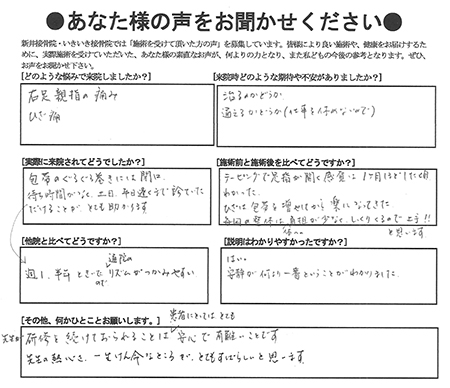 ●あなた様の声をお聞かせください●
新井接骨院・いきいき接骨院では「施術を受けて頂いた方の声」を募集しています。皆様により良い施術や、健康をお届けするた
めに、実際施術を受けていただいた、あなた様の素直なお声が、何よりの力となり、また私どもの今後の参考となります。ぜひ、
お声をお聞かせ下さい。
[どのような悩みで来院しましたか?]
右足親指の痛み
ひざ痛
[来院時どのような期待や不安がありましたか?]
治るのかどうか
通えるかどうか(仕事を休めないので)
[実際に来院されてどうでしたか?]
包帯のぐるぐる巻きには閉口。
待ち時間がなく、土日、平日遅くまで診ていた
だけることが、とても助かります
[施術前と施術後を比べてどうですか?]
テーピングで足指が開く感覚は1ヶ月ほどしたら
わかった。
ひざは包帯を増やしてから楽になってきた。
毎回の整体は負担が少なく、しっくりくるので上手!!
だと思います
[他院と比べてどうですか?]
週1、平日ときどき通院のリズムがつかみやすい
[説明はわかりやすかったですか?]
はい。
安静が何より一番ということがわかりました。
[その他、何かひとことお願いします。]
先生が研修を続けておられることは患者にとってはとても安心で有難いことです
先生の熱心さ、一生けん命なところが、とてもすばらしいと思います。